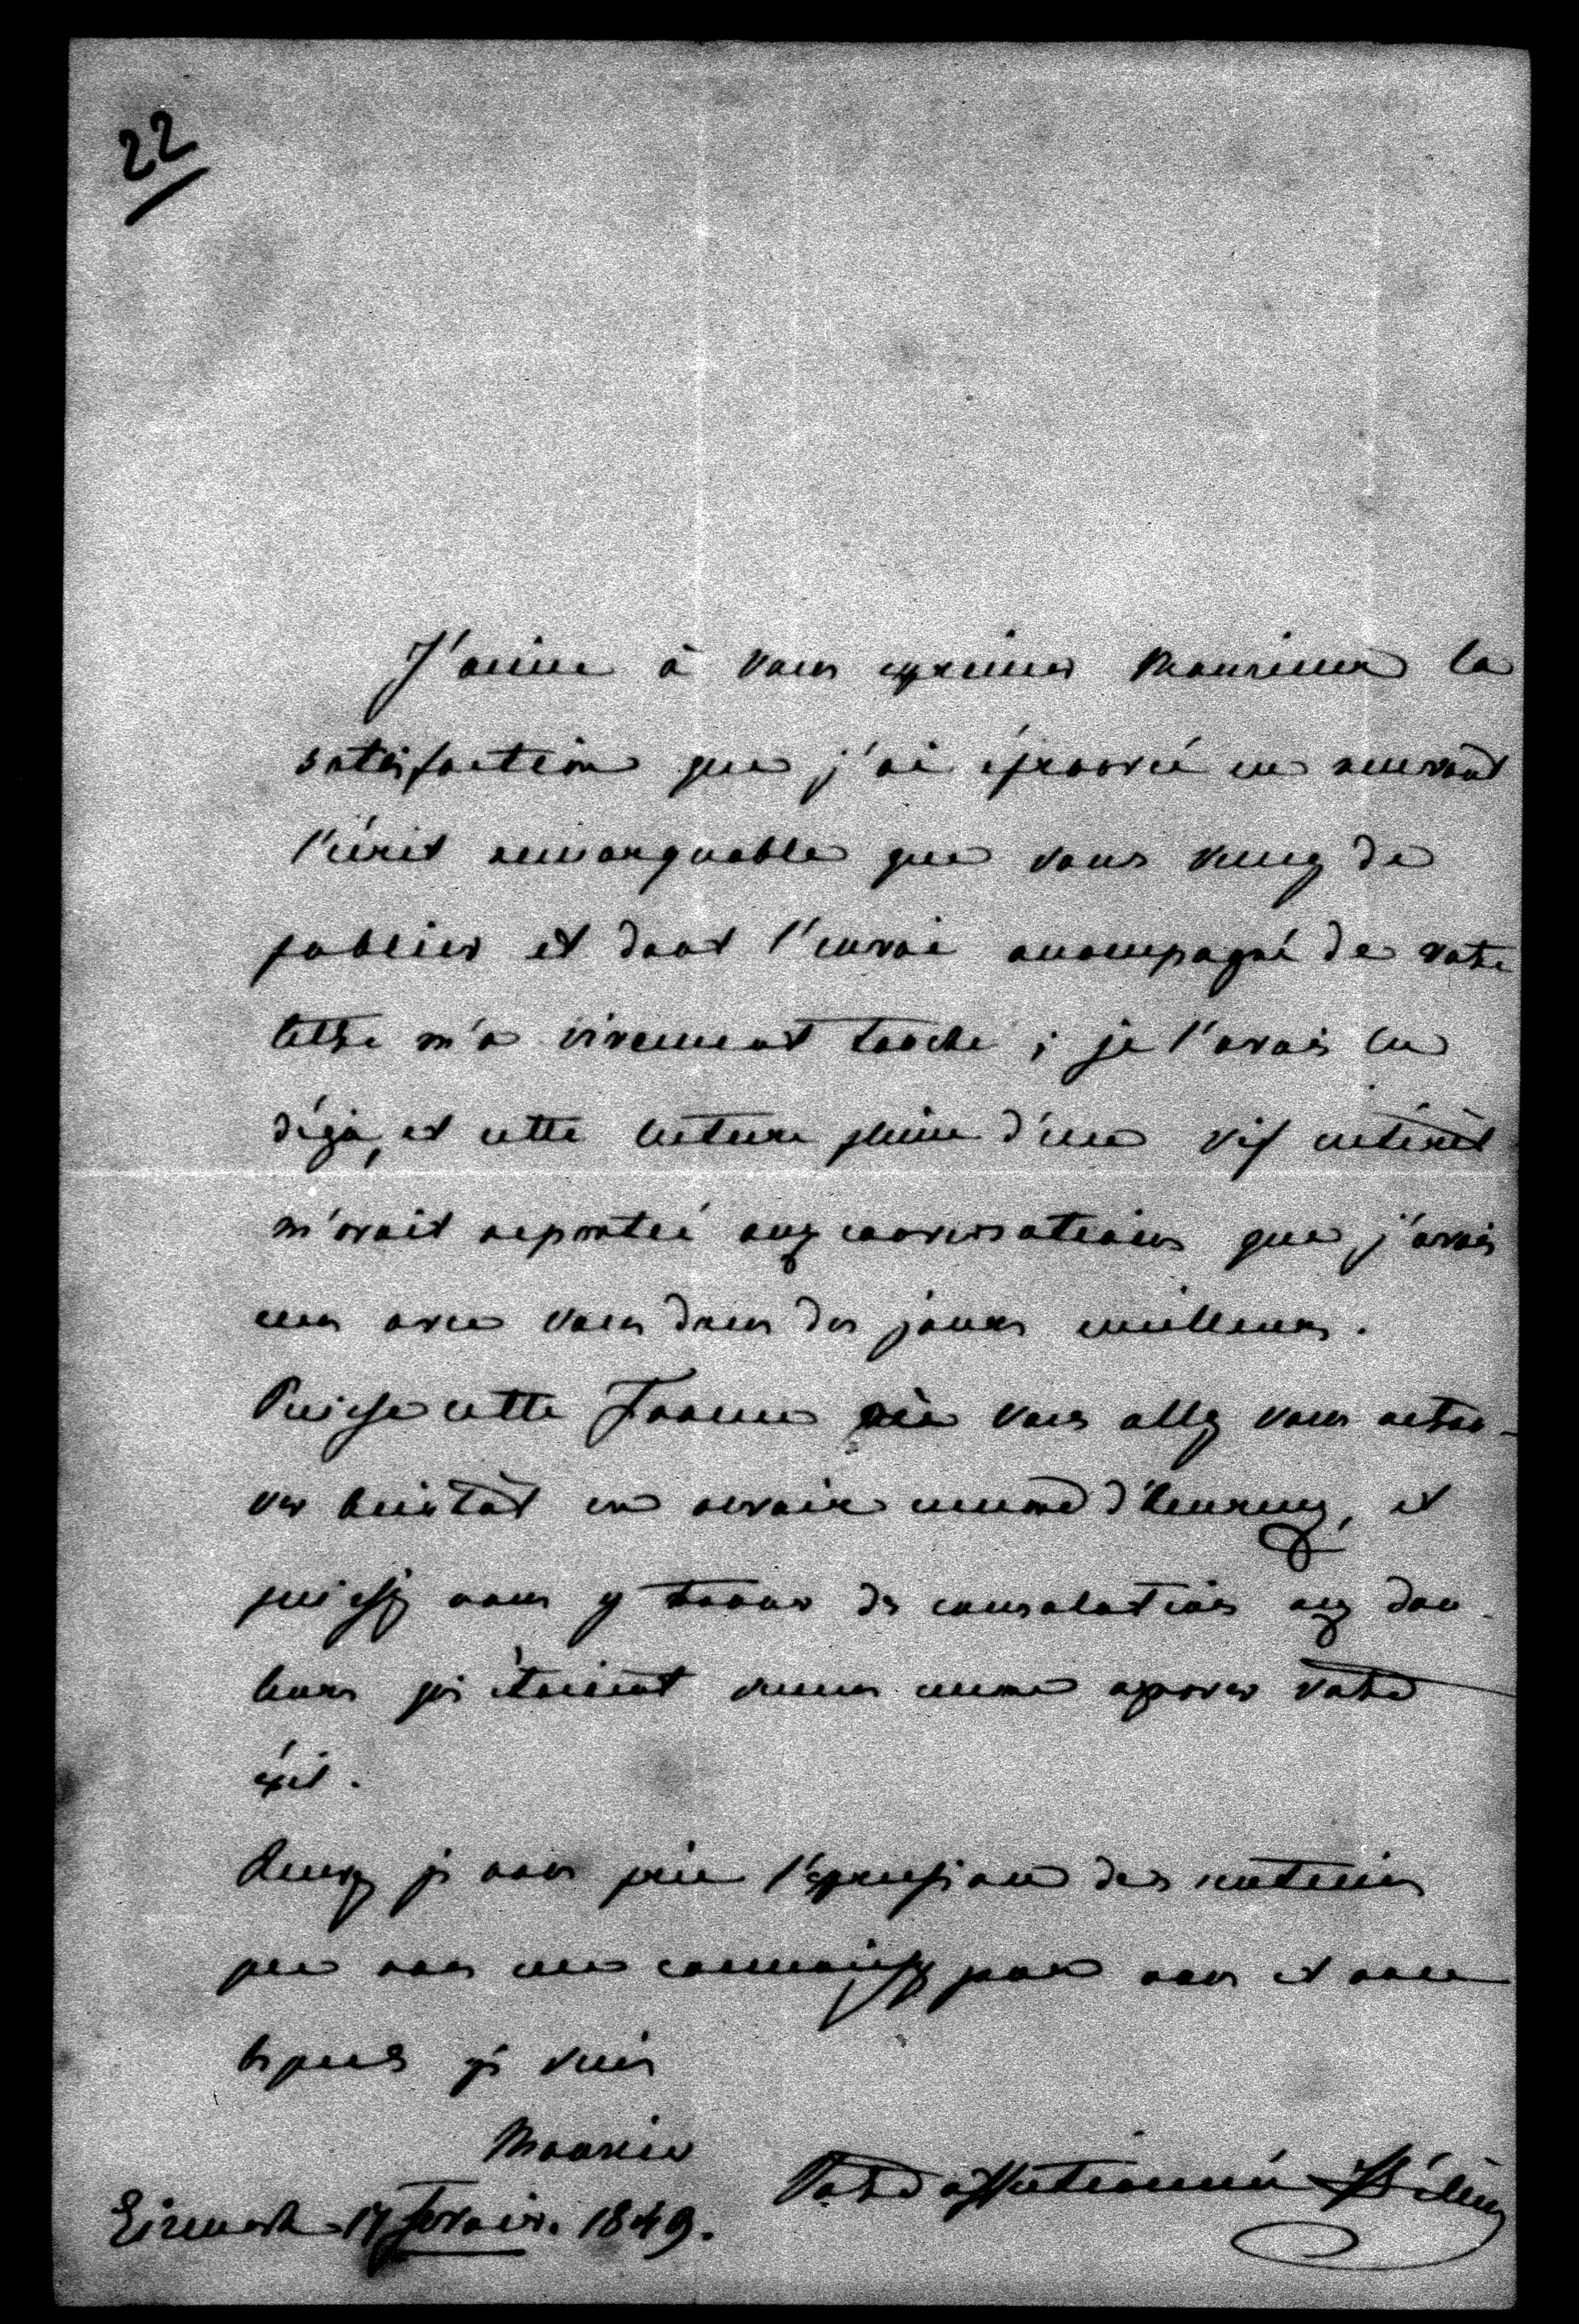 22
J'aime à vous exprimer Monsieur la
satisfaction que j'ai éprouvé en recevant
l'écrit remarquable que vous venez de
publier et dont l'envoi accompagné de votre
lettre m'a vivement touché ; je l'avais lu
déjà, et cette lecture pleine d'un vif intérêt
m'avait reporté aux conversations que j'avais
eues avec vous dans des jours meilleurs.
Puisse cette France où vous allez vous retrou-
ver bientôt en revoir encore d'heureux, et
puissiez vous y trouver des consolations aux dou-
leurs qui étaient venues encore aggraver votre
éxil.
Recevez je vous prie l'expression des sentimens
que vous me connaissez pour vous et avec
lesquels je suis
Monsieur
Votre affectionnée Hélène
Eisenach 17 fevrier. 1849.